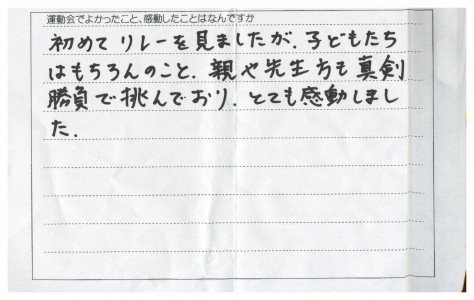 運動会でよかったこと、感動したことはなんですか
初めてリレーを見ましたが、子どもたち
はもちろんのこと、親や先生方も真剣
勝負で挑んでおり、とても感動しまし
た.